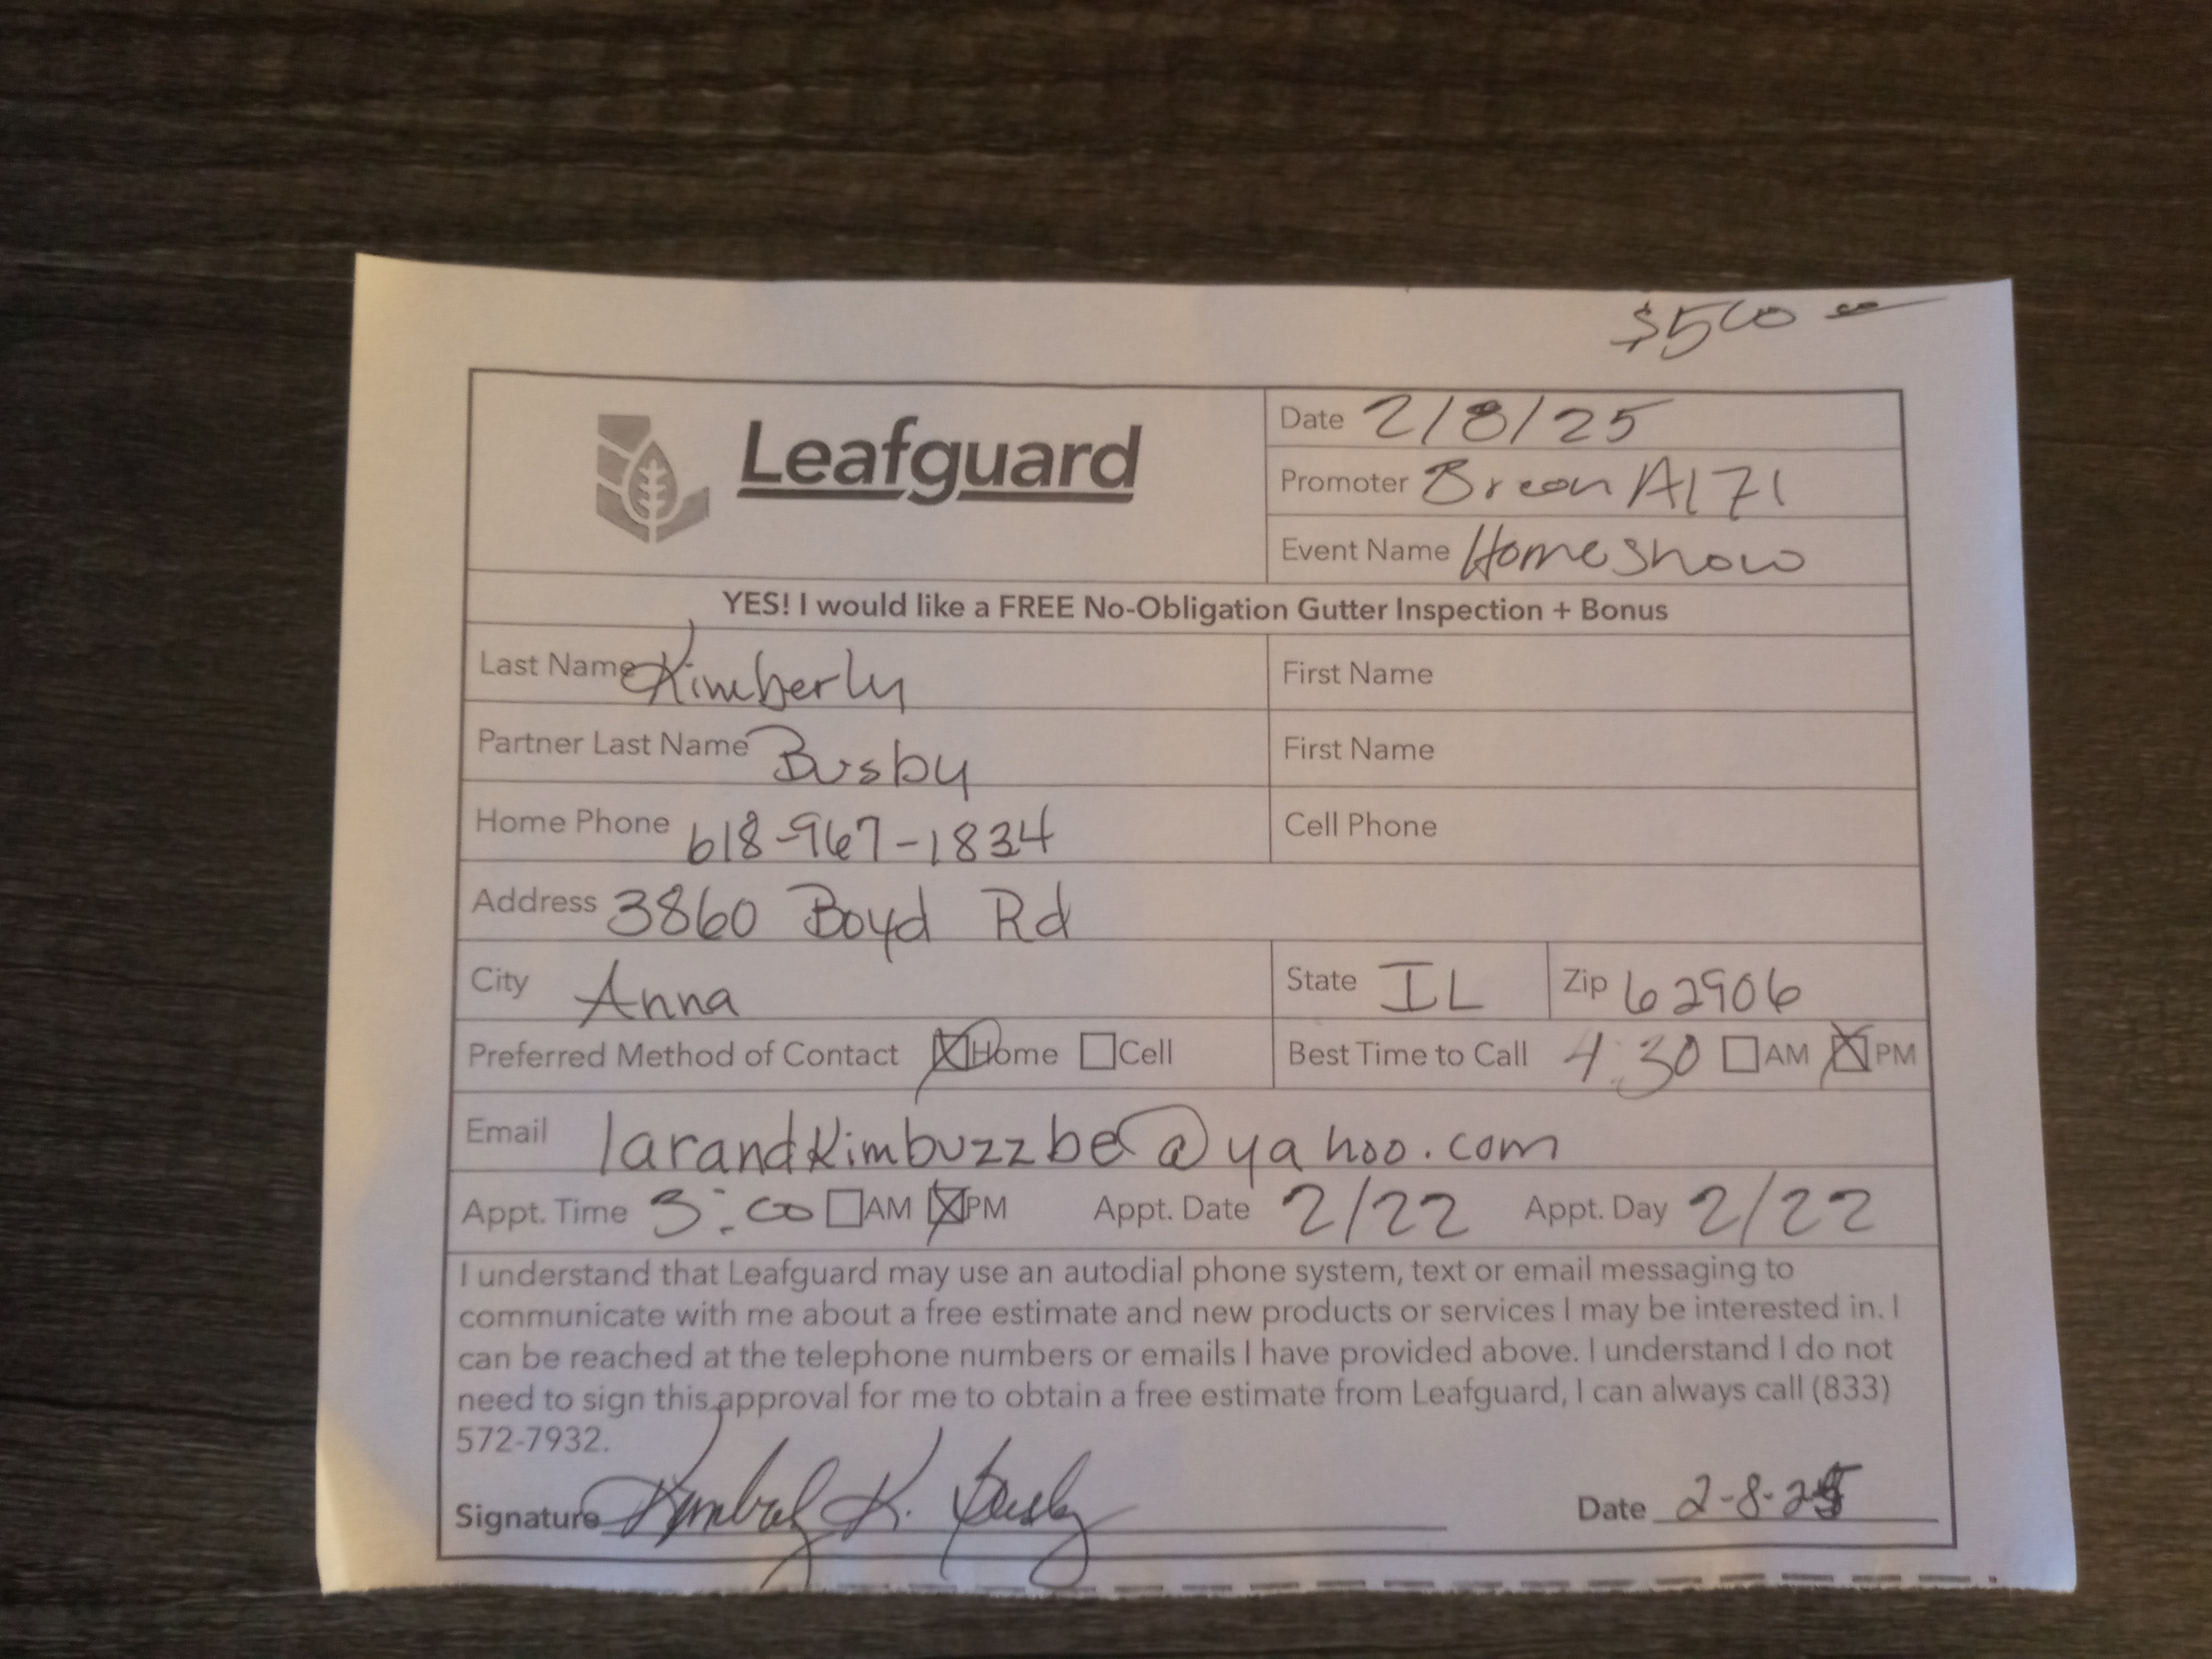 $500
Leafguard
Date 2/8/25
Promoter Breon H171
Event Name Homeshow
YES! I would like a FREE No-Obligation Gutter Inspection + Bonus
Last Name Kimberly First Name
Partner Last Name Busby First Name
Home Phone 618-967-1834 Cell Phone
Address 3860 Boyd Rd
City Anna State IL Zip 62906
Preferred Method of Contact ☒Home ☐Cell Best Time to Call 4:30 ☐AM ☒PM
Email larandkimbuzzbee@yahoo.com
Appt. Time 3:00 ☐AM ☒PM Appt. Date 2/22 Appt. Day 2/22
I understand that Leafguard may use an autodial phone system, text or email messaging to
communicate with me about a free estimate and new products or services I may be interested in. I
can be reached at the telephone numbers or emails I have provided above. I understand I do not
need to sign this approval for me to obtain a free estimate from Leafguard, I can always call (833)
572-7932.
Signature Kimberly K. Busby Date 2-8-25